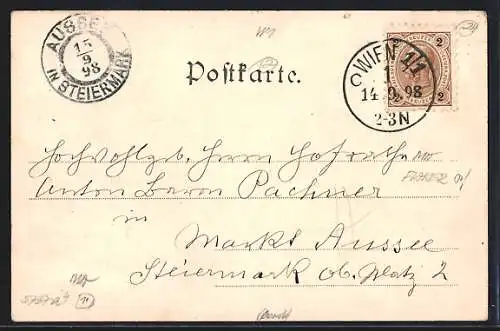 AUSSEE
15
9
98
IN STEIERMARK
WIEN 1/1
1
14.9.98
2-3N
2
2 2
Postkarte.
Hochwohlgeb. Herrn Hofrathe
Anton Baron Pachner
in
Markt Aussee
Steiermark ob. Platz 2